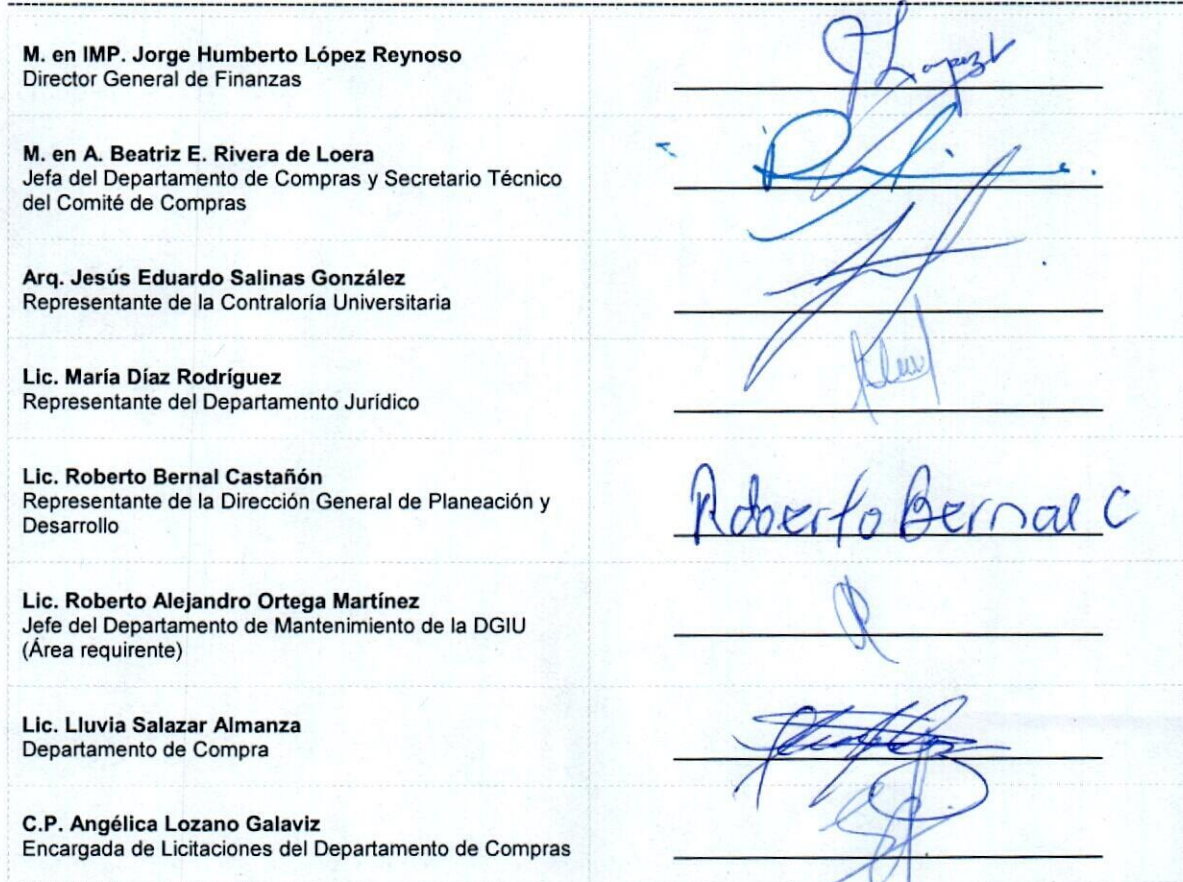 M. en IMP. Jorge Humberto López Reynoso
Director General de Finanzas
J Lopez
M. en A. Beatriz E. Rivera de Loera
Jefa del Departamento de Compras y Secretario Técnico
del Comité de Compras
Arq. Jesús Eduardo Salinas González
Representante de la Contraloría Universitaria
Lic. María Díaz Rodríguez
Representante del Departamento Jurídico
Lic. Roberto Bernal Castañón
Representante de la Dirección General de Planeación y
Desarrollo
Roberto Bernal C
Lic. Roberto Alejandro Ortega Martínez
Jefe del Departamento de Mantenimiento de la DGIU
(Área requirente)
Lic. Lluvia Salazar Almanza
Departamento de Compra
C.P. Angélica Lozano Galaviz
Encargada de Licitaciones del Departamento de Compras